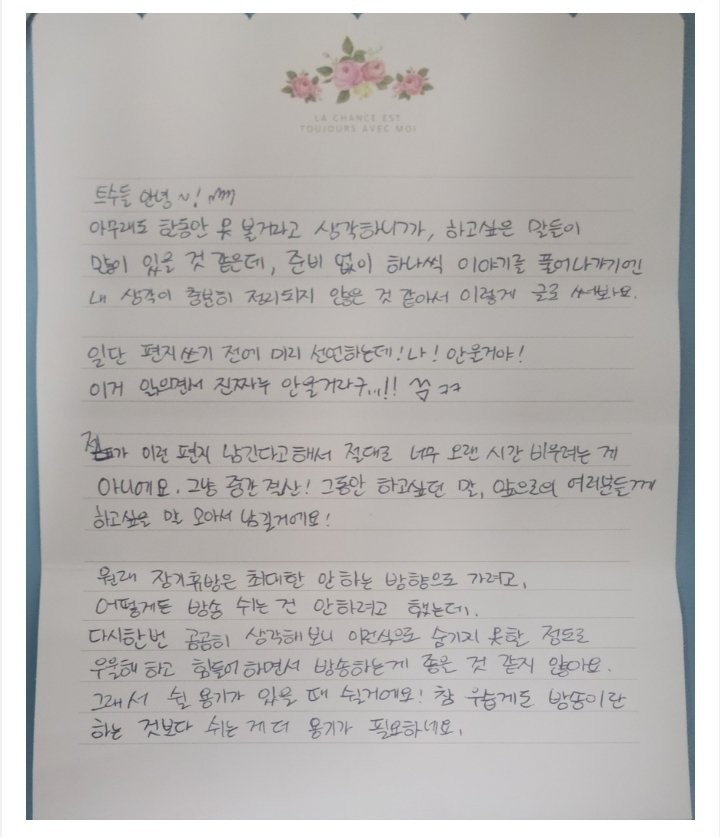 LA CHANCE EST
TOUJOURS AVEC MOI
트수들 안녕~!
아무래도 한동안 못 볼거라고 생각하니까, 하고싶은 말들이
많이 있을 것 같은데, 준비 없이 하나씩 이야기를 풀어나가기엔
내 생각이 충분히 정리되지 않은 것 같아서 이렇게 글로 써봐요.
일단 편지쓰기 전에 미리 선언하는데! 나! 안울거야!
이거 읽으면서 진짜루 안울거라구...!! 씀 ㅋㅋ
제가 이런 편지 남긴다고해서 절대로 너무 오랜 시간 비우려는 게
아니에요. 그냥 중간 결산! 그동안 하고싶던 말, 앞으로의 여러분들께
하고싶을 말 모아서 남길거에요!
원래 장기휴방은 최대한 안 하는 방향으로 가려고,
어떻게든 방송 쉬는 건 안하려고 했는데,
다시한번 곰곰히 생각해보니 이런식으로 숨기지 못할 정도로
우울해 하고 힘들어하면서 방송하는게 좋은 것 같지 않아요.
그래서 쉴 용기가 있을 때 쉴거에요! 참 우습게도 방송이란
하는 것보다 쉬는 게 더 용기가 필요하네요.